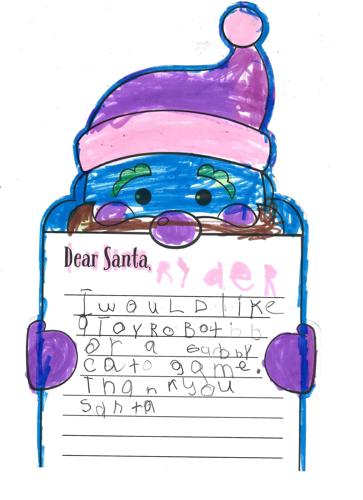 Dear Santa,
RYdeR
I WOULD like
a TOYROBOt
or a
cato game.
Thankyou
santa